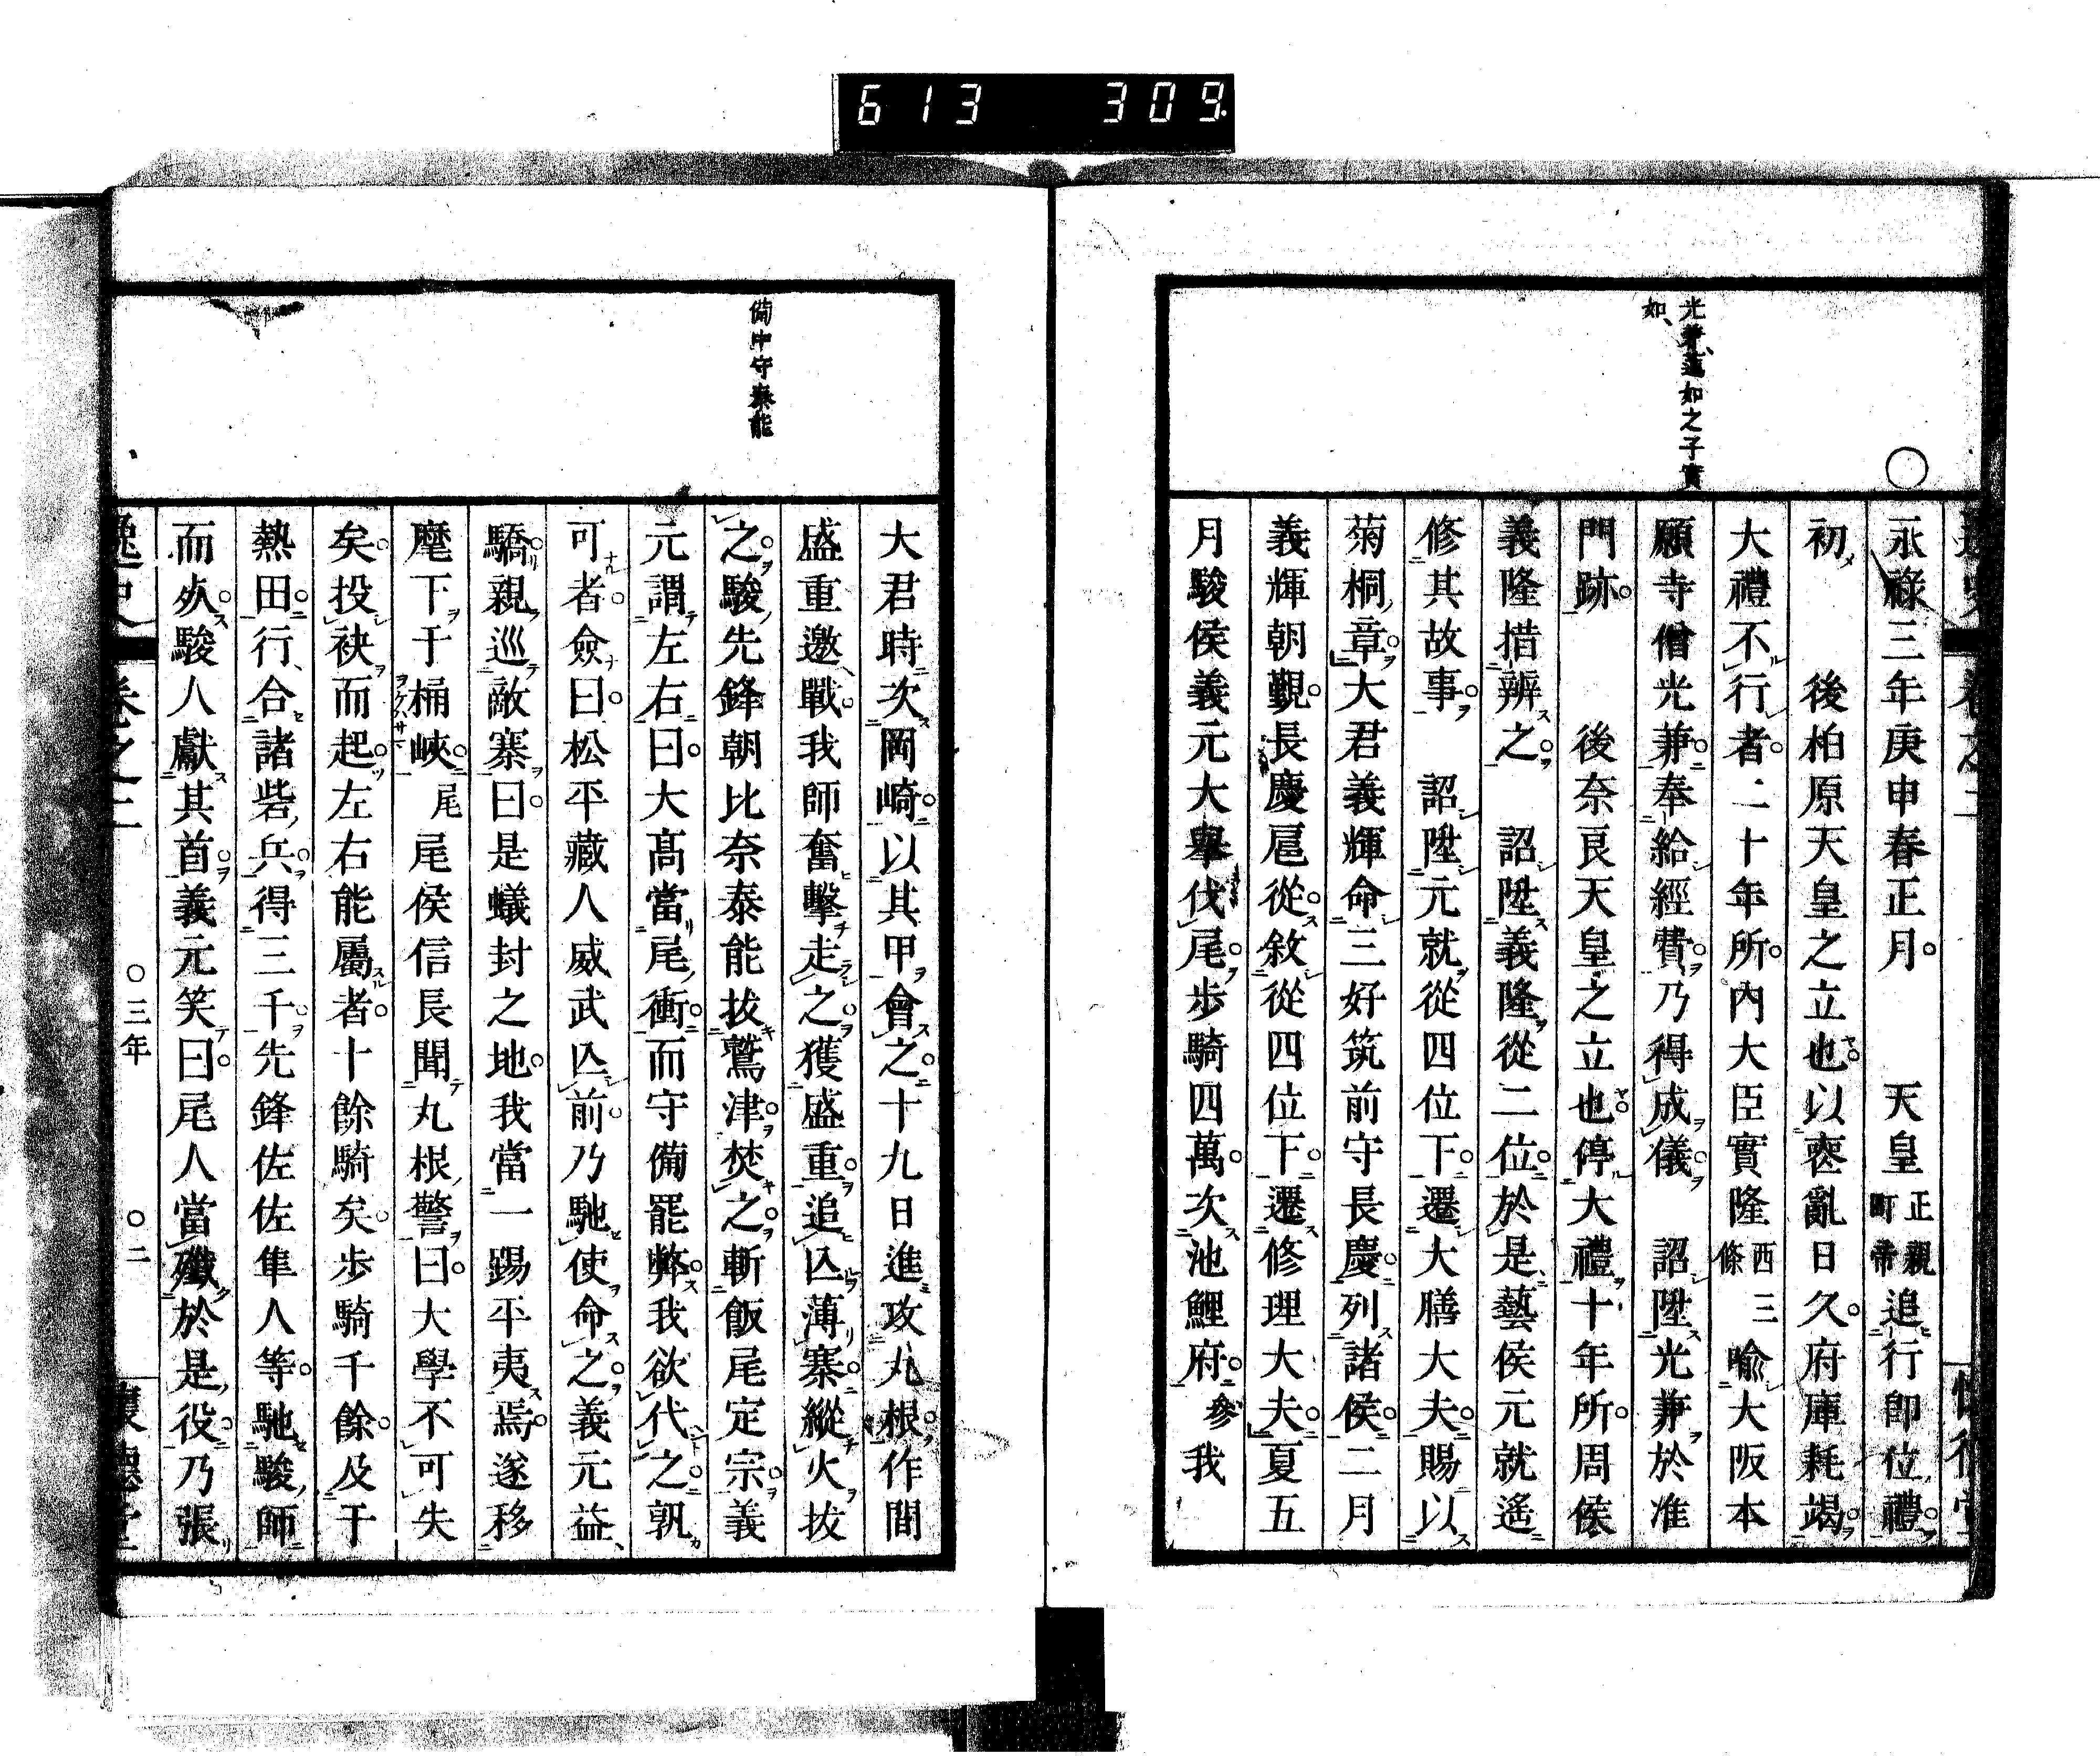 613 309
光兼、蓮如之子實
如、
○
永祿三年庚申春正月。 天皇正親町帝追行卽位禮。
初 後柏原天皇之立也。以喪亂日久。府庫耗竭。
大禮不行者。二十年所。內大臣實隆西三條喩大阪本
願寺僧光兼。奉給經費。乃得成儀。 詔陞光兼於准
門跡。 後奈良天皇之立也。停大禮十年所。周侯
義隆措辨之。 詔陞義隆從二位。於是藝侯元就遙
修其故事。 詔陞元就從四位下。遷大膳大夫。賜以
菊桐章。大君義輝命三好筑前守長慶。列諸侯。二月
義輝朝覲。長慶扈從。敘從四位下。遷修理大夫。夏五
月駿侯義元大舉伐尾。步騎四萬。次池鯉府。參我
備中守泰能
大君時次岡崎。以其甲會之。十九日進攻丸根。作間
盛重邀戰。我師奮擊走之。獲盛重。追亾薄寨。縱火拔
之。駿先鋒朝比奈泰能拔鷲津。焚之。斬飯尾定宗。義
元謂左右曰。大高當尾衝。而守備罷弊。我欲代之。孰
可者。僉曰。松平藏人威武亾前。乃馳使命之。義元益
驕。親巡敵寨。曰。是蟻封之地。我當一踢平夷焉。遂移
麾下于桶峽。尾 尾侯信長聞丸根警。曰。大學不可失
矣。投袂而起。左右能屬者。十餘騎矣。步騎千餘。及于
熱田。行合諸砦兵。得三千。先鋒佐佐隼人等。馳駿師
而𣦸。駿人獻其首。義元笑曰。尾人當殲於是役。乃張
逸史 卷之二 ○三年 ○二 懷德堂